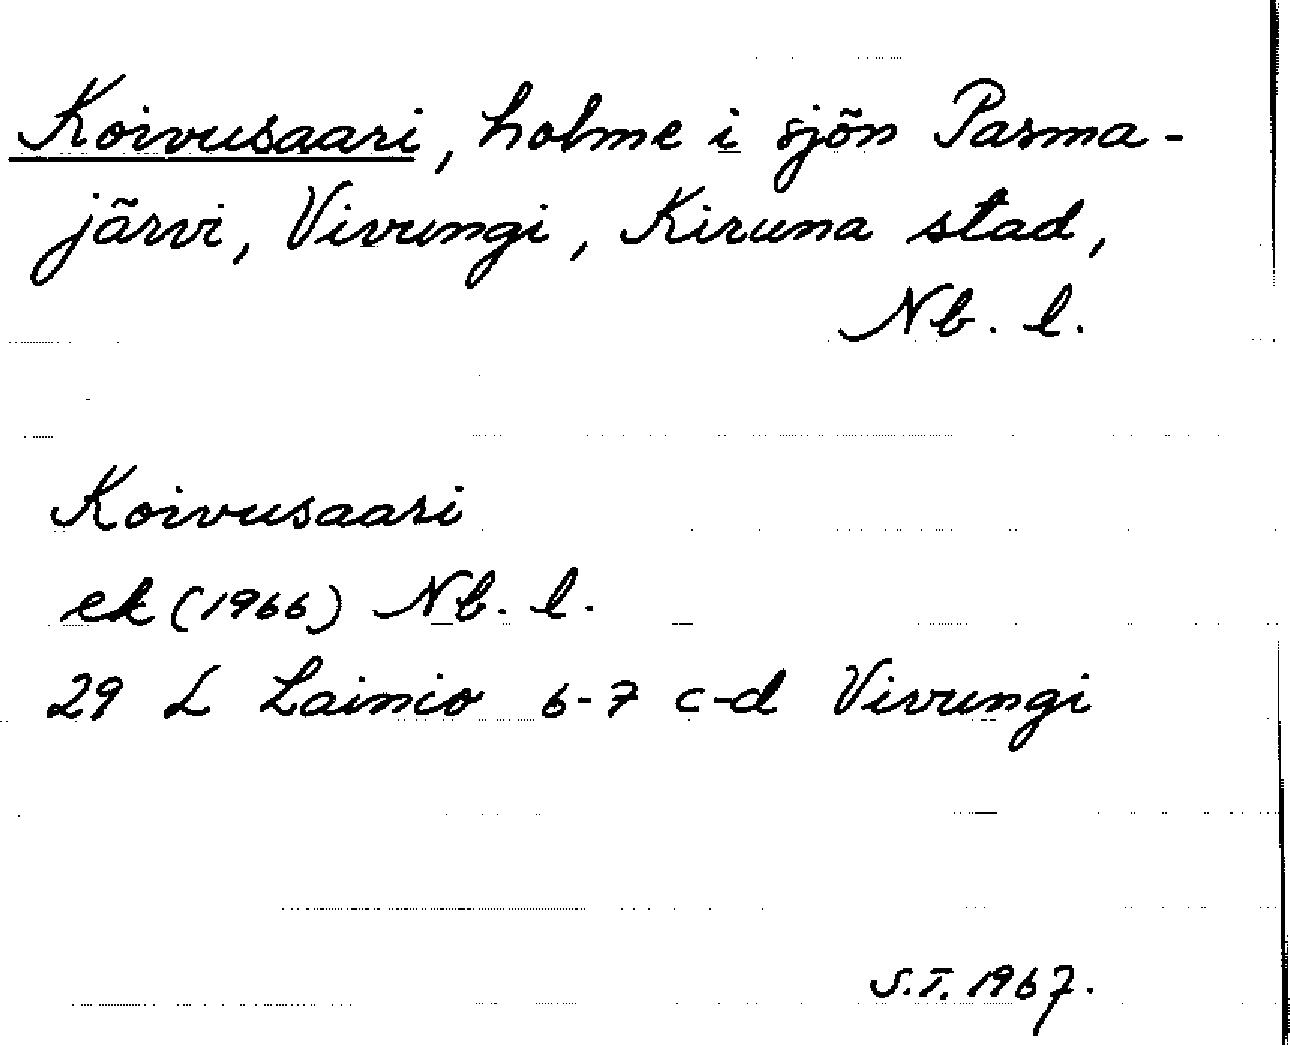 Koivusaari, holme i sjön Pasma-
järvi, Vivungi, Kiruna stad,
Nb. l.
Koivusaari
ek (1966) Nb. l.
29 L Lainio 6-7 c-d Vivungi
S.T. 1967.